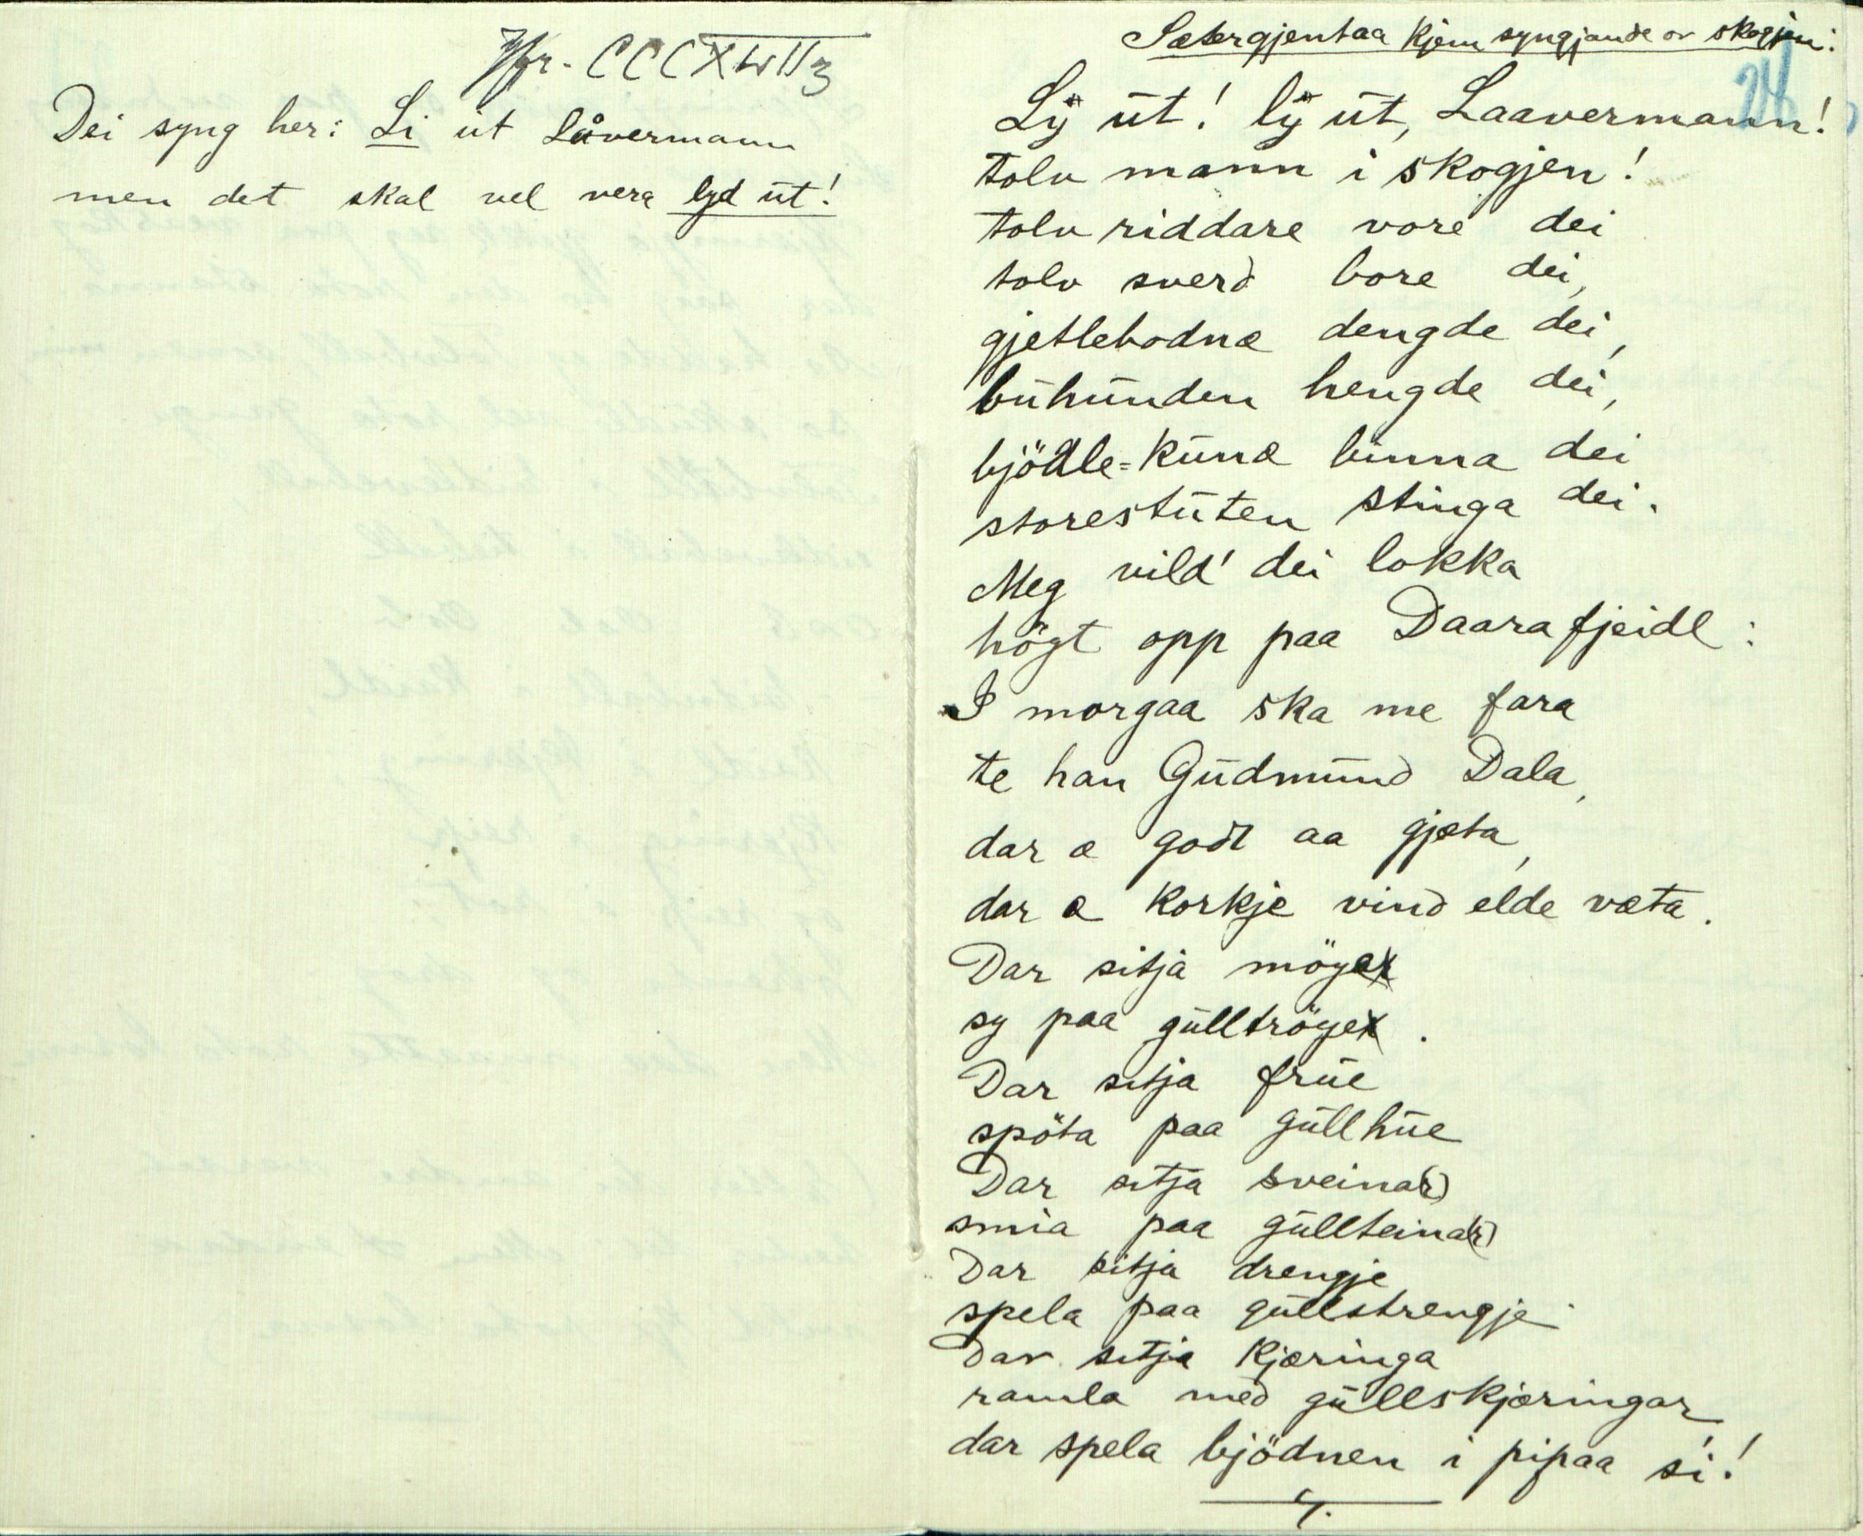 Jfr. CCCXLVII3
Dei syng her: Li ut Låvermann
men det skal vel vera lyd ut!
Sætergjentaa kjem syngjande or skogjen:
24
Ly ut! ly ut, Laavermann!
tolv mann i skogjen!
tolv riddare vore dei
tolv sverd bore dei,
gjetlebodnæ dengde dei,
buhunden hengde dei,
bjödle=kunæ binna dei
storestuten stinga dei.
Meg vild' dei lokka
högt opp paa Daarafjeidl:
I morgaa ska me fara
te han Gudmund Dala,
dar æ godt aa gjæta,
dar æ korkje vind elde væta.
Dar sitja möyer
sy paa gulltröyer.
Dar sitja frue
spöta paa gullhue
Dar sitja sveina(r)
smia paa gullteina(r)
Dar sitja drengje
spela paa gullstrengje.
Dar sitja kjæringa
ramla med gullskjæringar
dar spela bjödnen i pipaa si!